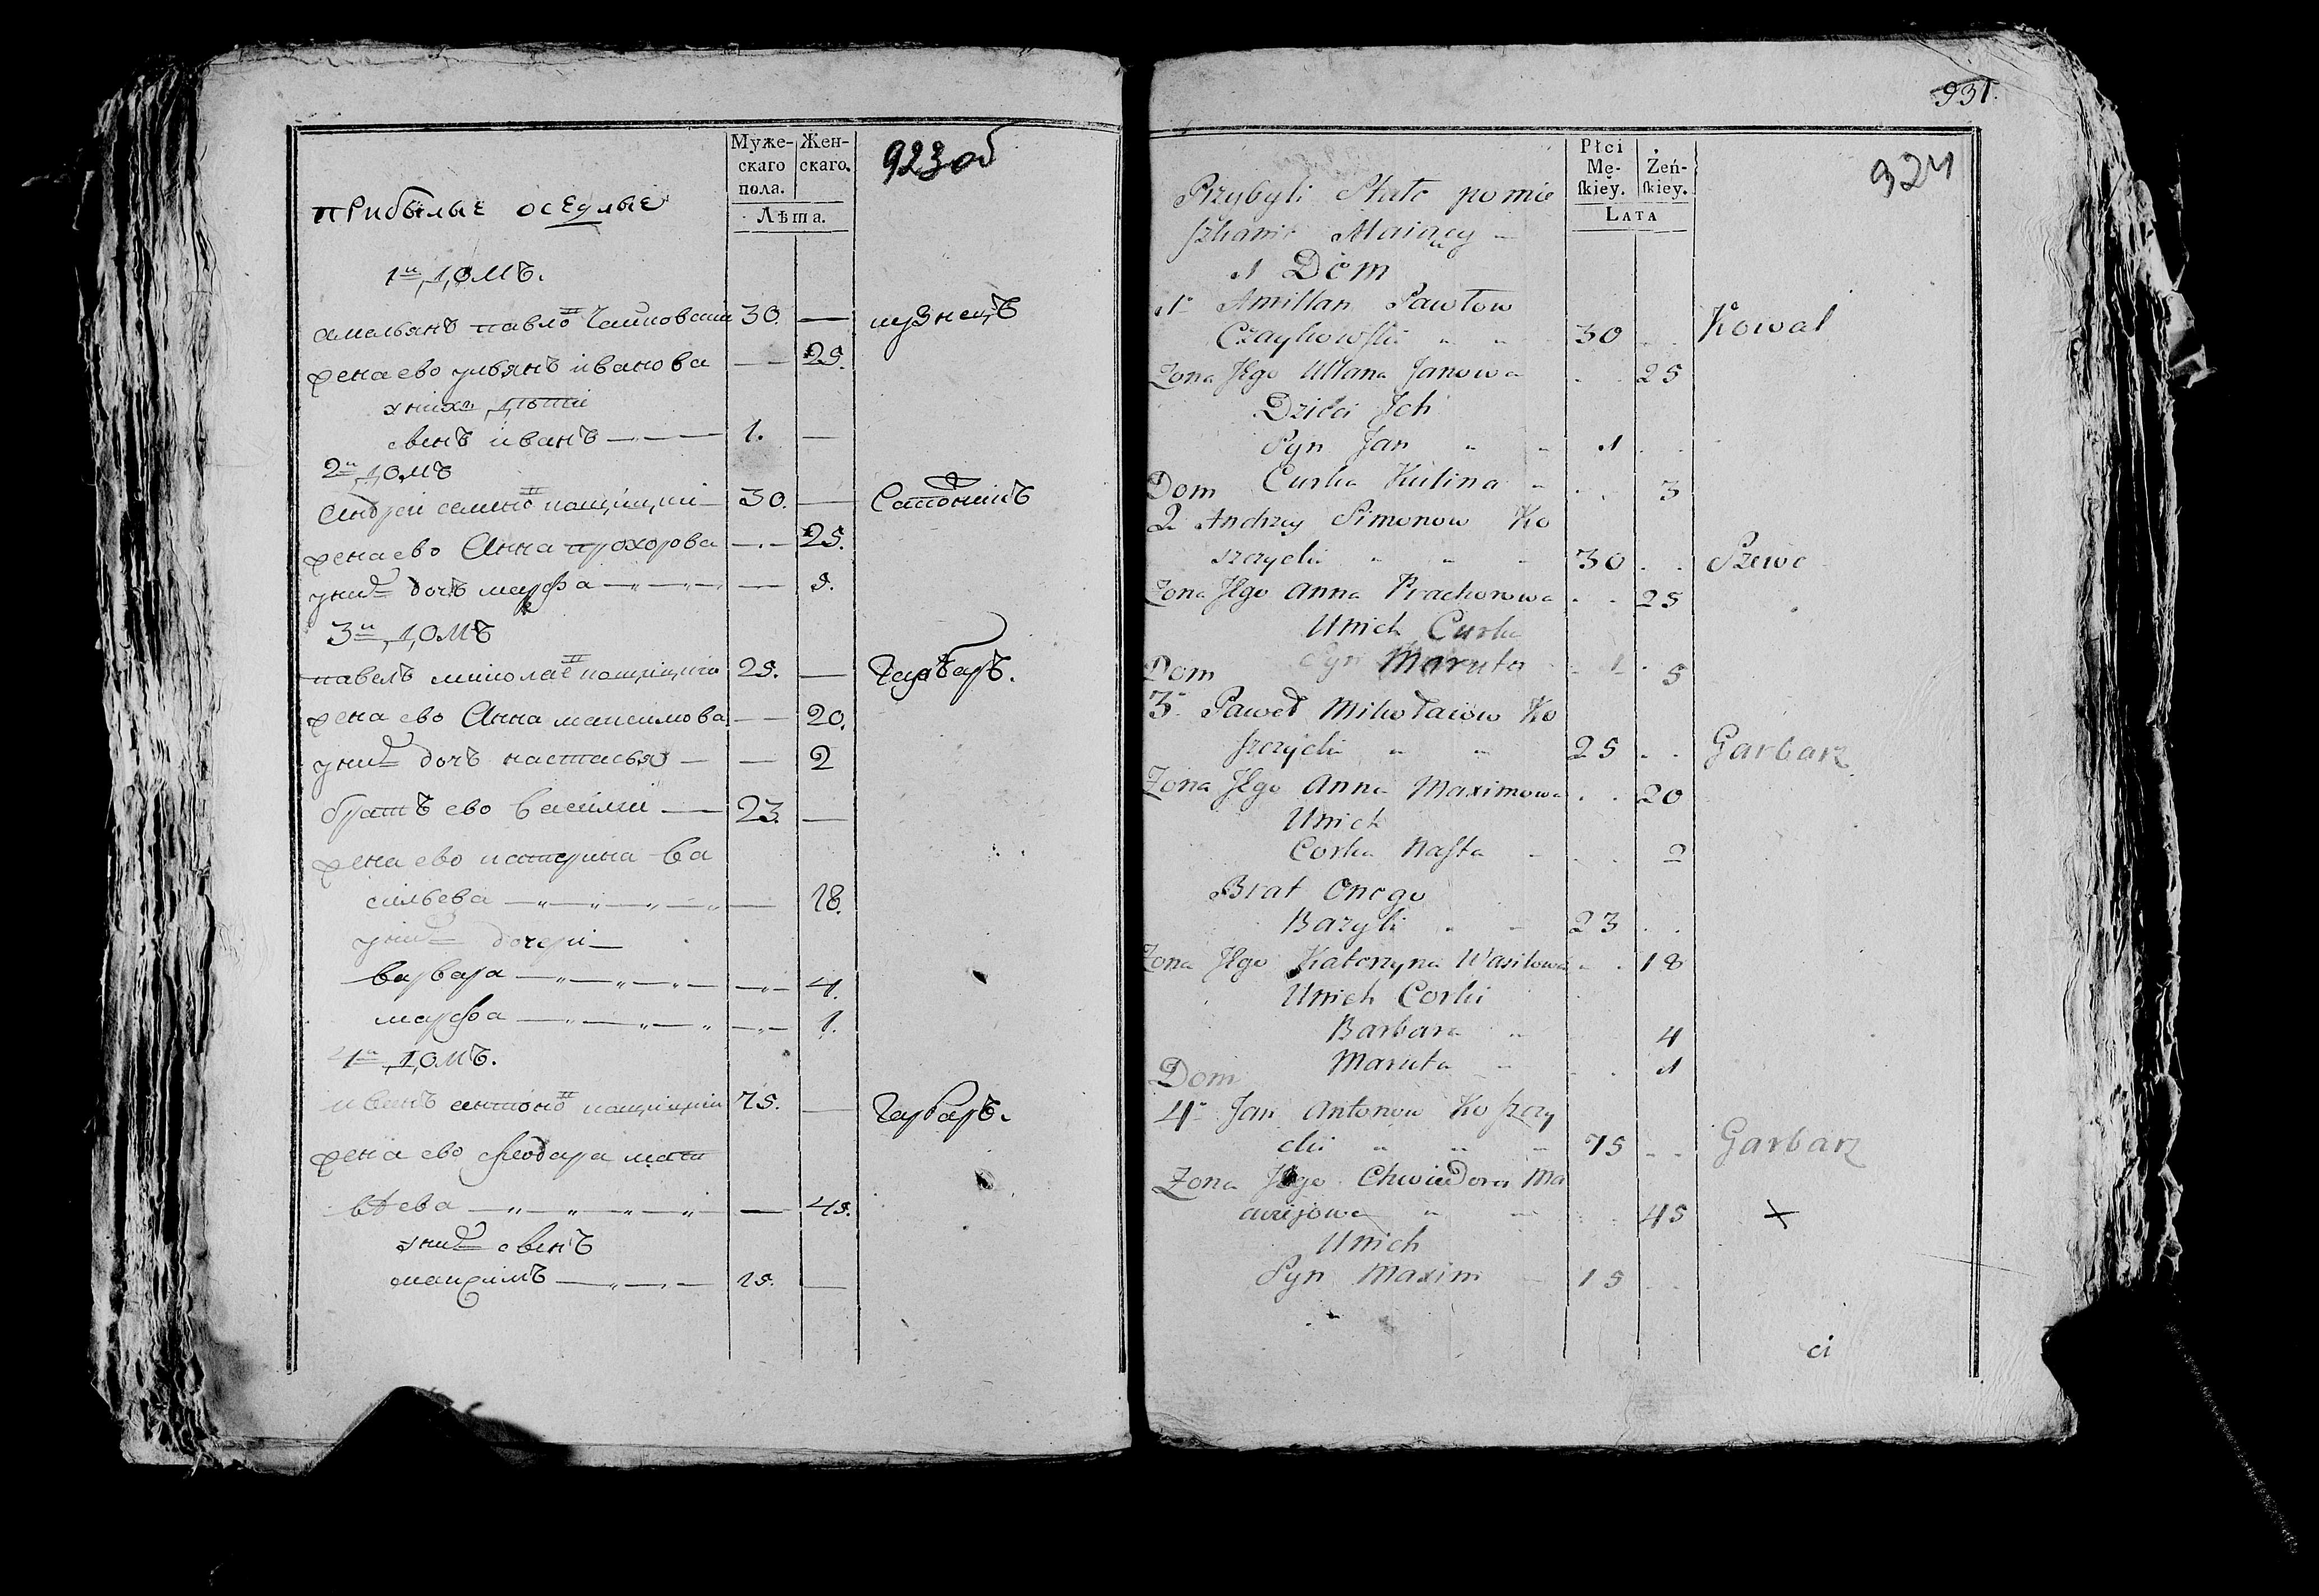 Муже-
скаго
пола.
Жен-
скаго.
Лѣта.
923об
прибылые оседлые
1й домъ.
амельянъ павло Чайковский 30. — кузнецъ
жена ево ульянъ иванова — 25.
у них дѣти
сынъ иванъ — 1. —
2й домъ
андрей семено кощицкий 30. — Сапожникъ
жена ево Анна прохорова — 25.
у них дочъ марфа — 5.
3й домъ
павелъ миколае кощицкий 25. — Гарбаръ.
жена ево Анна максимова — 20.
у них дочъ настасья — 2
братъ ево василий — 23. —
жена ево катерина ва
сильева — 18.
у них дочери
варвара — 4.
марфа — 1.
4й домъ.
иванъ антоно кощицкий 75. — Гарбаръ.
жена ево феодара мат
вѣева — 45.
у них сынъ
максимъ — 15. —
931.
924
Płci
Mę-
skiey.
Żeń-
skiey.
LATA
Przybyli Stałe pomie
szkanie Maiący
1 Dom
1 Amillan Pawłow
Czaykowski 30 Kowal
Zona Jego Ullana Janowa 25
Dzieci Jch
Syn Jan 1
Curka Kulina 3
Dom
2 Andrzey Simonow Ko
szczycki 30 Szewc
Zona Jego Anna Prachorowa 25
Unich Curka
Syn Maruta 1 5
Dom
3 Paweł Mikołaiow Ko
szczycki 25 Garbarz
Zona Jego Anna Maximowa 20
Unich
Corka Nasta 2
Brat Onego
Bazyli 23
Zona Jego Katerzyna Wasilowa 18
Unich Corki
Barbara 4
Maruta 1
Dom
4 Jan Antonow Koszczy
cki 75 Garbarz
Zona Jego Chwiedora Ma
cwiejowa 45 x
Unich
Syn Maxim 15
ci